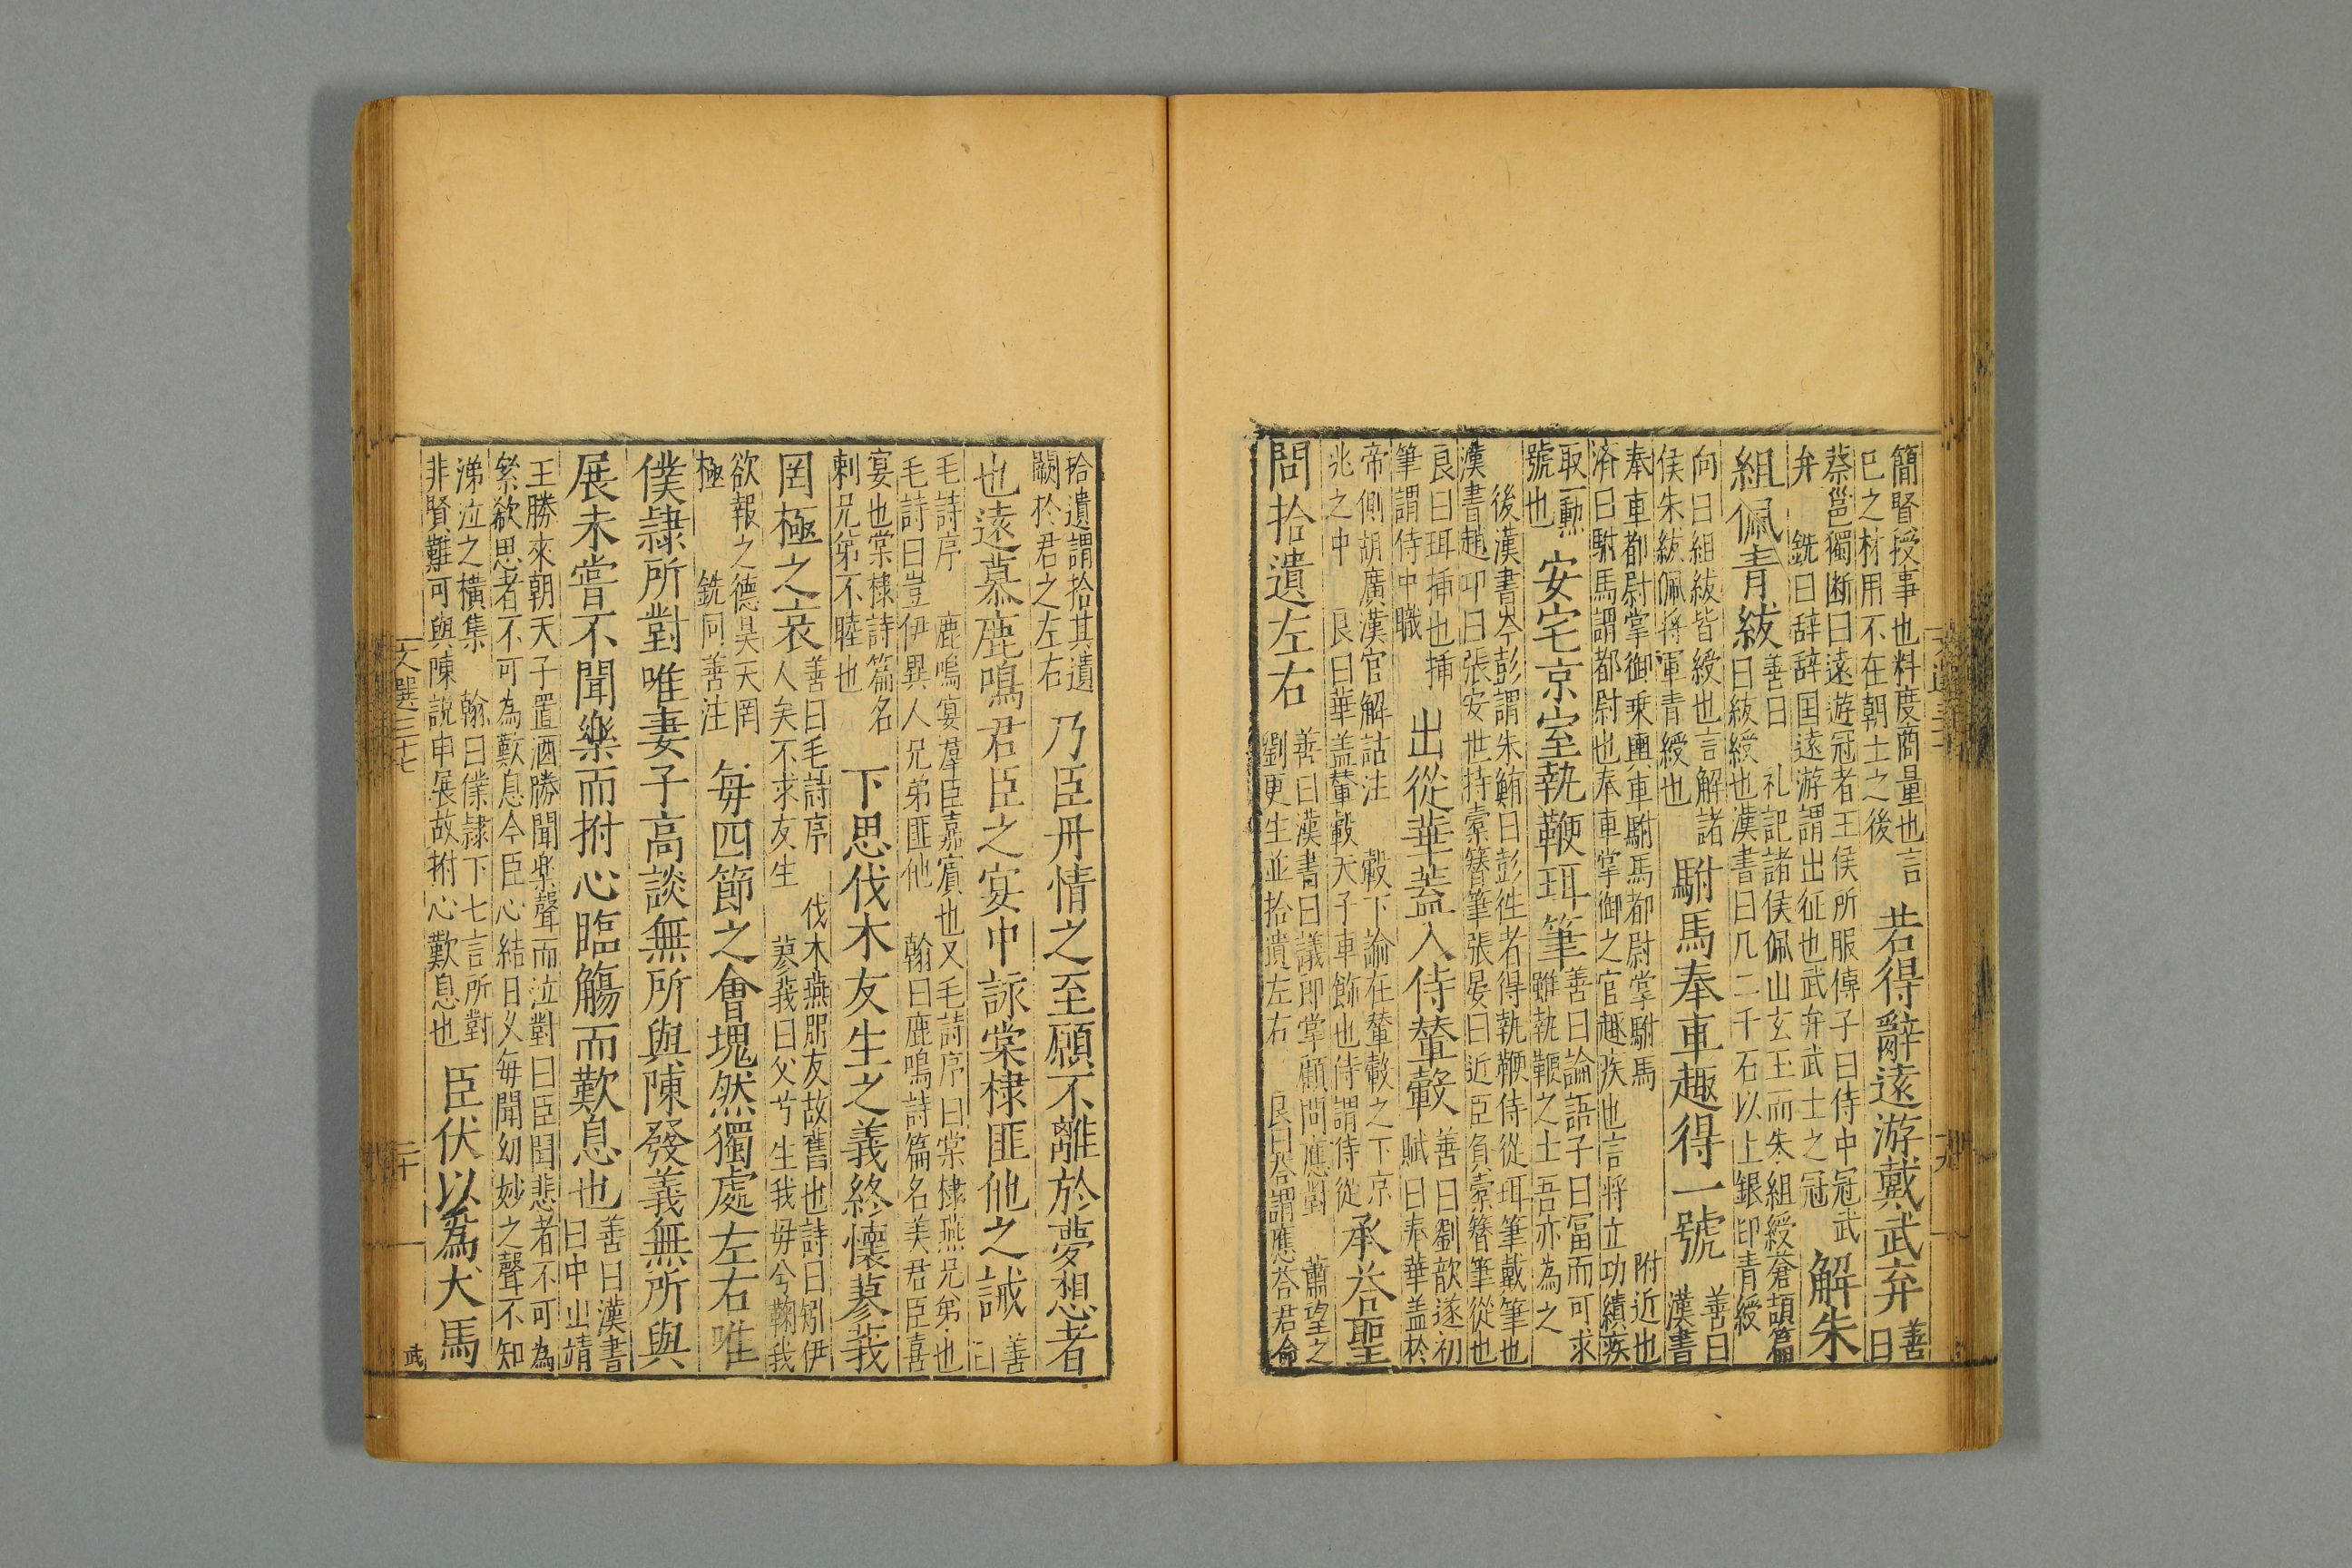 簡賢授事也料度商量也言
巳之材用不在朝士之後
若得辭遠游戴武弁
善
曰
蔡邕獨断曰遠遊冠者王侯所服傅子曰侍中冠武
弁 銑曰辞辞国遠游謂出征也武弁武士之冠
解朱
組佩青紱
善曰 礼記諸侯佩山玄玉而朱組綬蒼頡篇
曰紱綬也漢書曰凡二千石以上銀印青綬
向曰組紱皆綬也言解諸
侯朱紱佩将軍青綬也
駙馬奉車趣得一號
善曰
漢書
奉車都尉掌御乗輿車駙馬都尉掌駙馬 附近也
済曰駙馬謂都尉也奉車掌御之官趣疾也言将立功績疾
取一勲
號也
安宅京室執鞭珥筆
善曰論語子曰冨而可求
雖執鞭之士吾亦為之
後漢書岑彭謂朱鮪曰彭徃者得執鞭侍從珥筆戴筆也
漢書趙卬曰張安世持槖簪筆張晏曰近臣負槖簪筆從也
良曰珥挿也挿
筆謂侍中職
出從華蓋入侍輦轂
善曰劉歆遂初
賦曰奉華盖於
帝側胡廣漢官解詁注 轂下諭在輦轂之下京
兆之中 良曰華盖輦轂天子車飾也侍謂侍從
承荅聖
問拾遺左右
善曰漢書曰議郎掌顧問應對 蕭望之
劉更生並拾遺左右 良曰荅謂應荅君命
拾遺謂拾其遺
闕於君之左右
乃臣丹情之至願不離於夢想者
也遠慕鹿鳴君臣之宴中詠棠棣匪他之誡
善
曰
毛詩序 鹿鳴宴羣臣嘉賓也又毛詩序曰棠棣燕兄弟也
毛詩曰豈伊異人兄弟匪他 翰曰鹿鳴詩篇名美君臣喜
宴也棠棣詩篇名
刺兄弟不睦也
下思伐木友生之義終懷蓼莪
罔極之哀
善曰毛詩序 伐木燕朋友故舊也詩曰矧伊
人矣不求友生 蓼莪曰父兮生我毋兮鞠我
欲報之德昊天罔
極 銑同善注
每四節之會塊然獨處左右唯
僕隷所對唯妻子高談無所與陳發義無所與
展未嘗不聞樂而拊心臨觴而歎息也
善曰漢書
曰中山靖
王勝來朝天子置酒勝聞樂聲而泣對曰臣聞悲者不可為
絫欷思者不可為歎息今臣心結日乆每聞幼妙之聲不知
涕泣之橫集 翰曰僕隷下七言所對
非賢難可與陳說申展故拊心歎息也
臣伏以為犬馬
文選三十七
二十
武